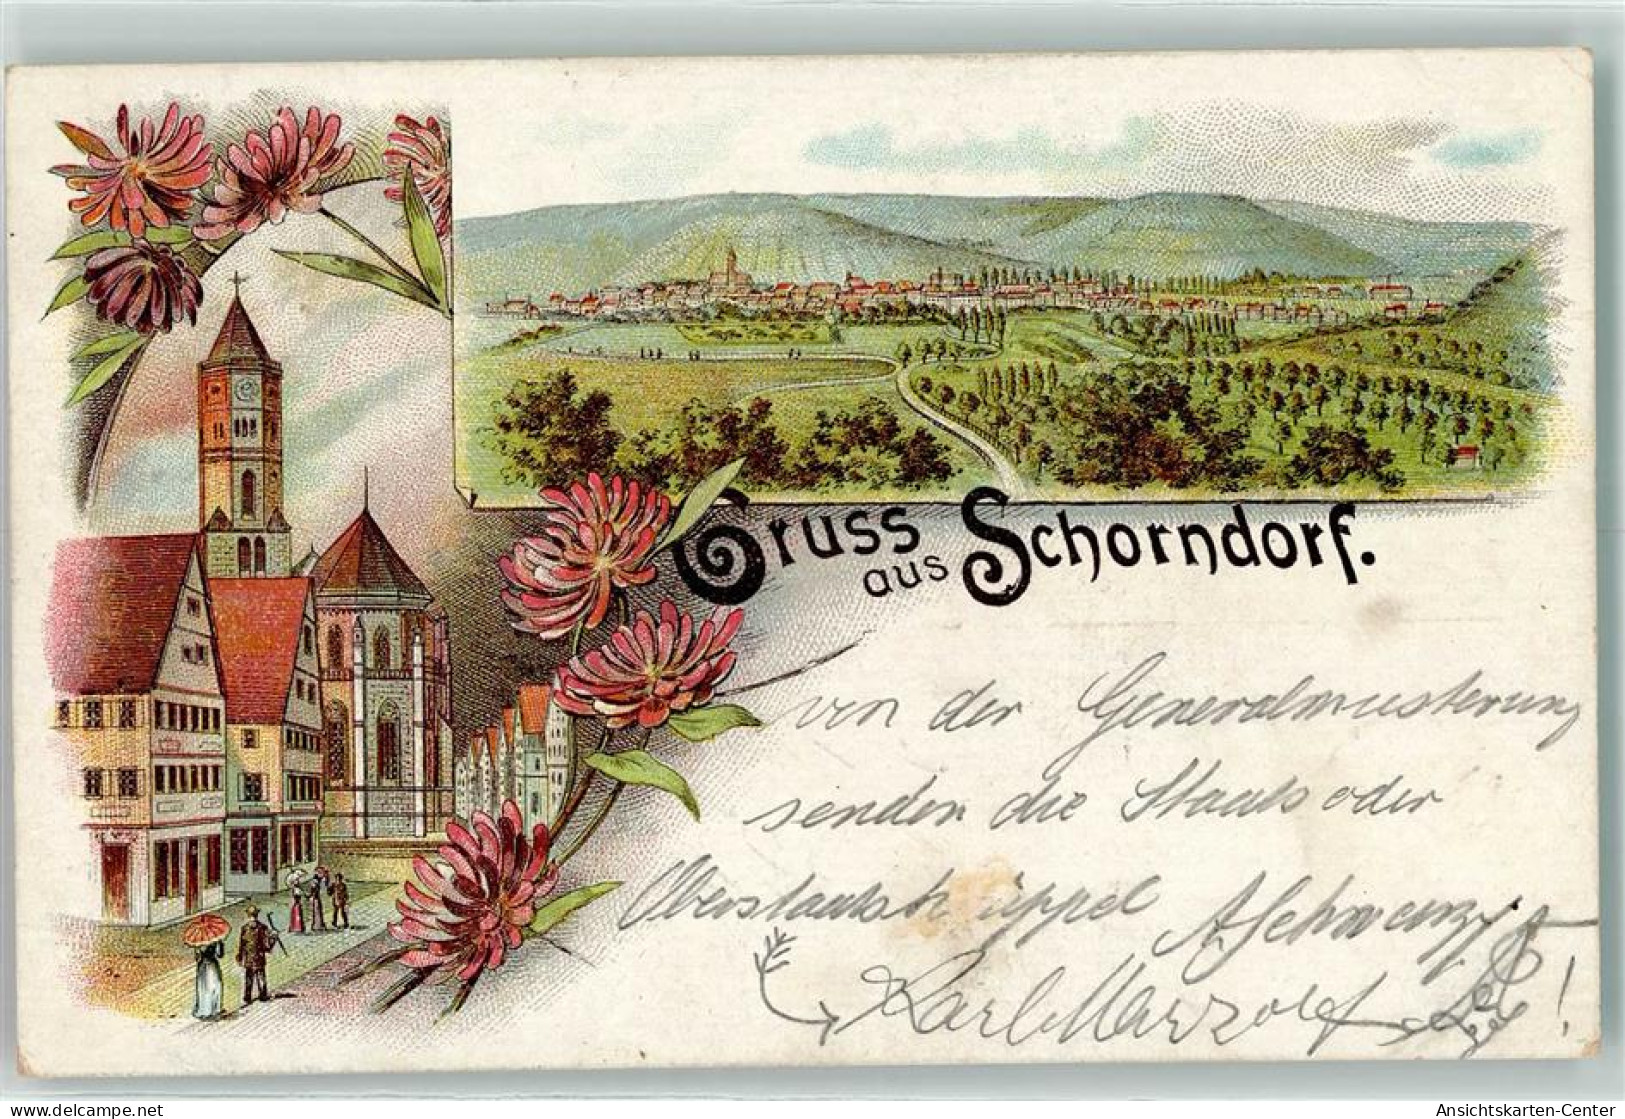 Gruss
aus Schorndorf.
von der Generalmusterung
senden die Staats oder
Oberstaatskrüppel A. Schwenzy
Karl Marzolf !
delcampe.net
Ansichtskarten-Center